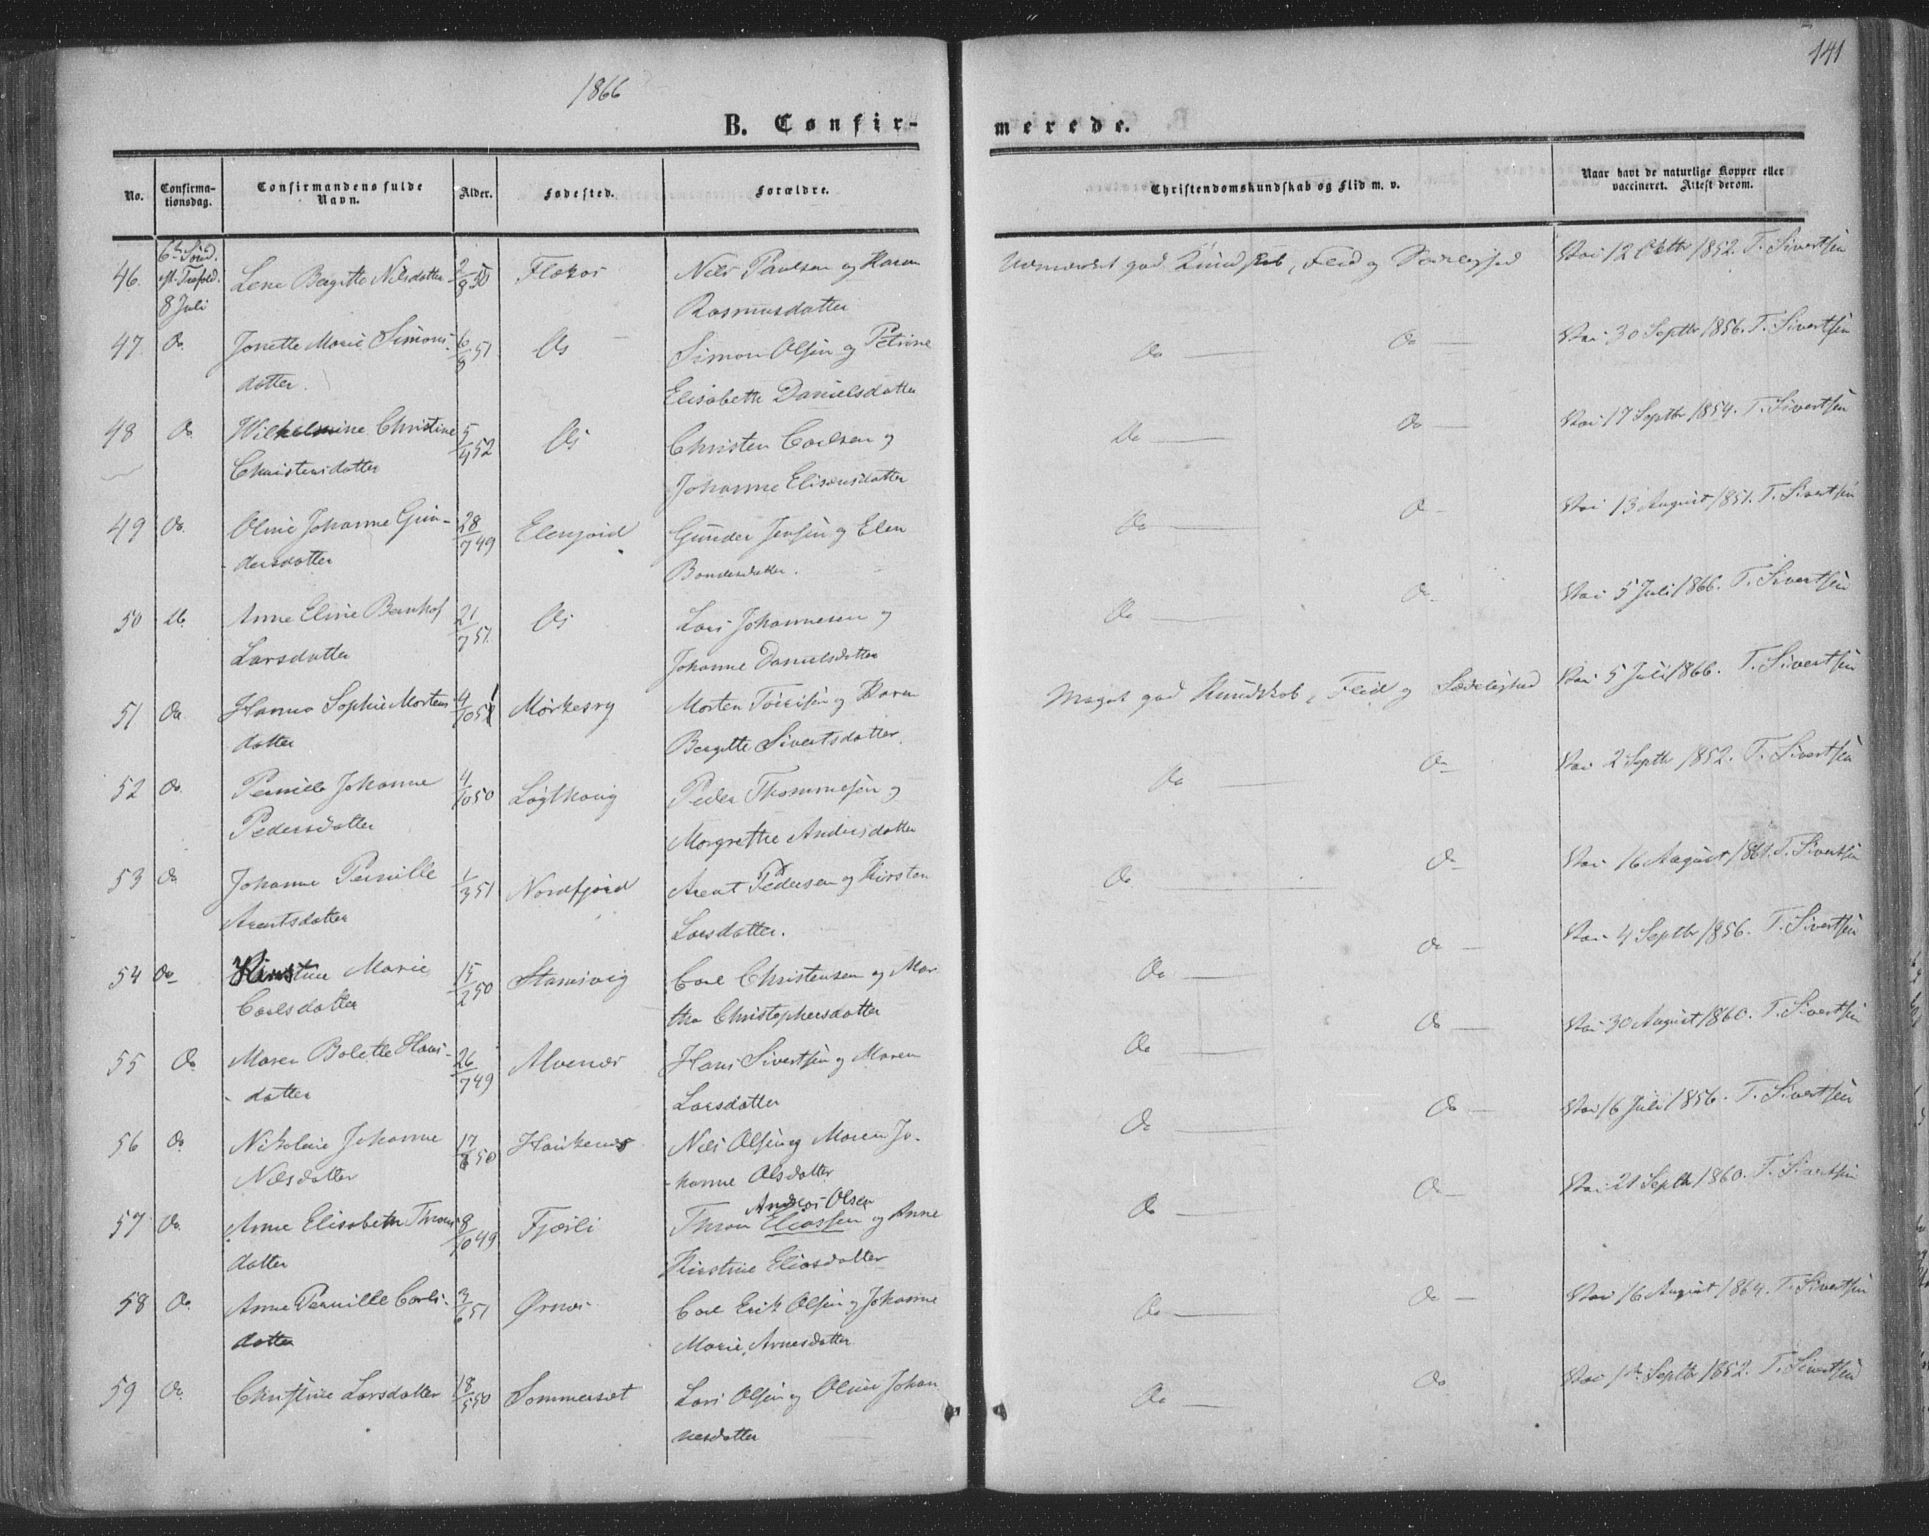 141
1866
B. Confir-
merede.
No.
Confirma-
tionsdag.
Confirmandens fulde
Navn.
Alder.
Fødested.
Forældre.
Christendomskundskab og Flid m. v.
Naar havt de naturlige Kopper eller
vaccineret. Attest derom.
46. 6te Sønd. eft. Trefold. 8 Juli Lene Bergitte Nilsdatter 2/8 50 Flakos Nils Paulsen og Karen
Rasmusdatter
Udmærket god Kundskab, Flid og Sædelighed Vac. 12 Oktbr 1852. T. Sivertsen
47. Do Jonette Marie Simons- 6/8 51 Os Simon Olsen og Petrine
datter. Elisabeth Danielsdatter
Do Do Vac. 30 Septbr 1856. T. Sivertsen
48 Do Wilhelmine Christine 5/4 52 Os Christen Carlsen og
Christensdatter Johanne Elisæusdatter
Do Do Vac. 17 Septbr 1854. T. Sivertsen
49 Do Oline Johanne Gun- 28/7 49 Elenjord Gunder Jensen og Elen
dersdatter Bondesdatter.
Do Do Vac. 13 August 1851. T. Sivertsen
50 Do Anne Eline Larsdatter 21/7 51. Os Lars Johannesen og
Johanne Danielsdatter
Do Do Vac. 5 Juli 1866. T. Sivertsen
51 Do Hanna Sophie Mortens 4/10 51 Mørkesry Morten og Karen
datter Bergitte Sivertsdatter.
Meget god Kundskab, Flid og Sædelighed Vac. 5 Juli 1866. T. Sivertsen
52 Do Pernille Johanne 4/10 50 Løgthaug Peder Thommesen og
Pedersdatter Margrethe Andersdatter
Do Do Vac. 2 Septbr 1852. T. Sivertsen
53 Do Johanne Pernille 1/3 51 Nordfjord Arent Pedersen og Kirsten
Arentsdatter Larsdatter.
Do Do Vac. 16 August 1861. T. Sivertsen
54 Do Kirstine Marie 15/2 50 Stamsvig Carl Christensen og Mar
Carlsdatter tha Christophersdatter
Do Do Vac. 4 Septbr 1856. T. Sivertsen
55 Do Maren Bolette Hans- 26/7 49 Alvenes Hans Sivertsen og Maren
datter Larsdatter
Do Do Vac. 30 August 1860. T. Sivertsen
56 Do Nikoline Johanne 17/6 50 Haukenes Nils Olsen og Maren Jo-
Nilsdatter hanne Olsdatter
Do Do Vac. 16 Juli 1856. T. Sivertsen
Andreas Olsen
57 Do Anne Elisabeth Thron- 8/10 49 Fjærli Thron Eliassen og Anne
datter Kirstine Eliasdatter
Do Do Vac. 21 Septbr 1860. T. Sivertsen
58 Do Anne Pernille Carls- 3/6 51 Ørnes Carl Erik Olsen og Johanne
datter Marie Arnesdatter
Do Do Vac. 16 August 1864. T. Sivertsen
59 Do Christine Larsdatter 18/5 50 Sommerset Lars Olsen og Oline Johan
nesdatter
Do Do Vac. 1ste Septbr 1852. T. Sivertsen